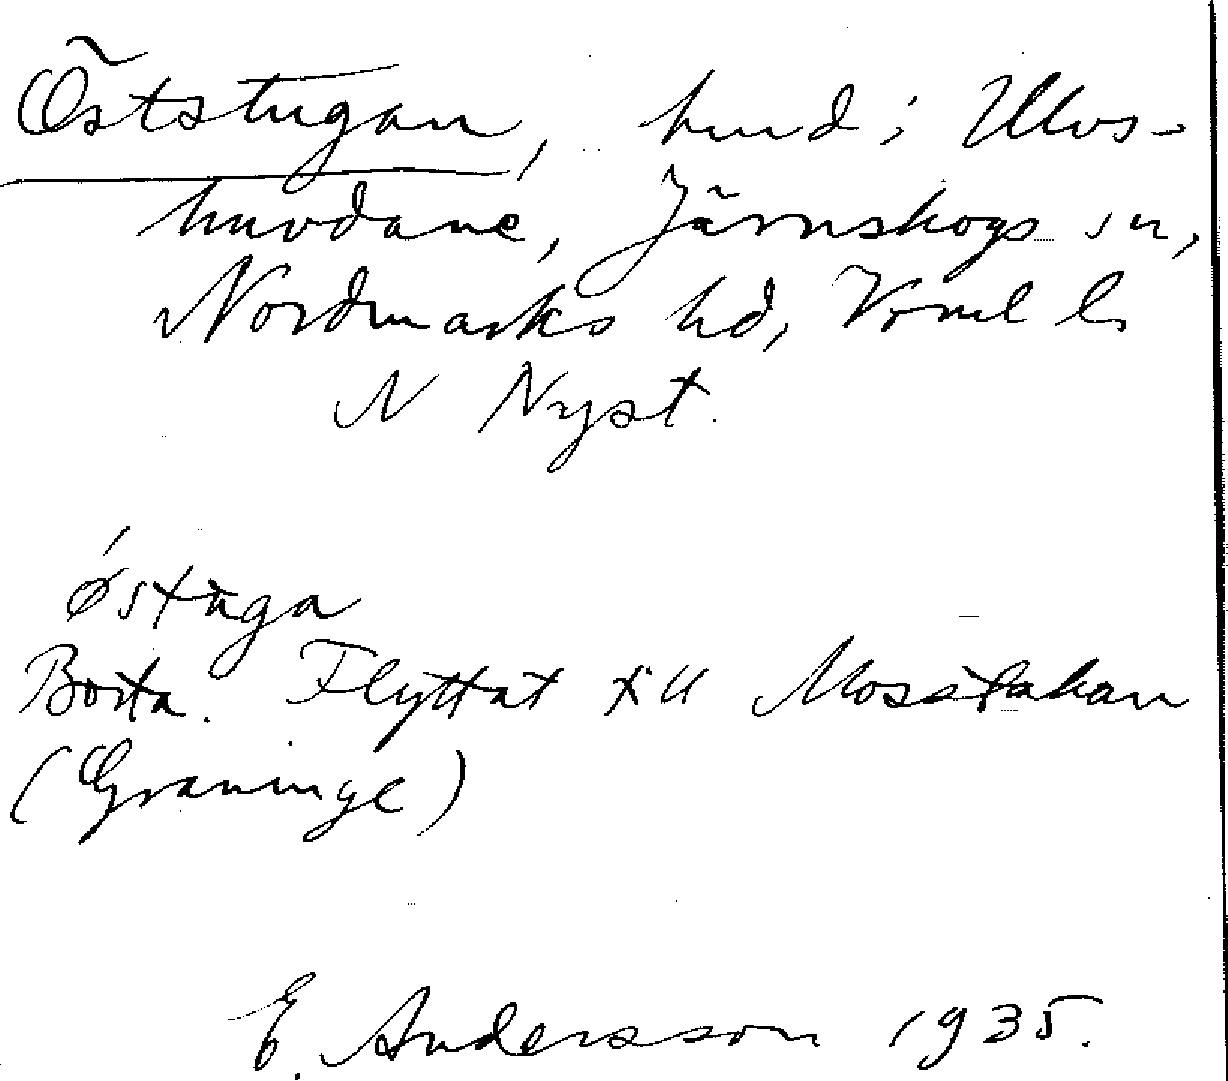 Öststugan, hmd i Ulvs-
huvdane, Järnskogs sn,
Nordmarks hd, Vrml l.
N Nyst.
østuga
Borta. Flyttat till Mosstakan
(Graninge)
E. Andersson 1935.